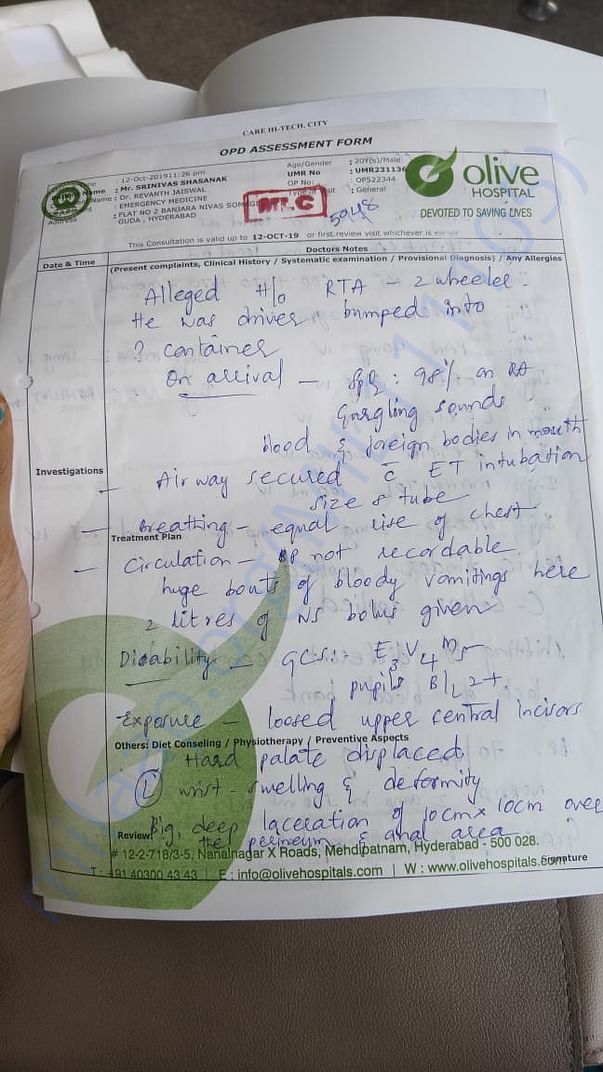 CARE HI-TECH. CITY
OPD ASSESSMENT FORM
: 12-Oct-2019 11:26 pm
Name : Mr. SRINIVAS SHASANAK
Name : Dr. REVANTH JAISWAL
: EMERGENCY MEDICINE
: FLAT NO 2 BANJARA NIVAS
GUDA , HYDERABAD
Age/Gender : 20Y(s)/Male
UMR No : UMR231136
OP No : OP522344
: General
MLC
5948
olive
HOSPITAL
DEVOTED TO SAVING LIVES
This Consultation is valid up to 12-OCT-19 or first review visit whichever is earlier
Date & Time
Doctors Notes
(Present complaints, Clinical History / Systematic examination / Provisional Diagnosis) / Any Allergies
Alleged H/o RTA - 2 wheeler.
He was driver, bumped into
? container
On arrival - SpO2 : 98% on RA
Gargling sounds
blood & foreign bodies in mouth
Investigations
- Airway secured c̄ ET intubation
size 8 tube
- Breathing - equal rise of chest
Treatment Plan
- Circulation - BP not recordable
huge bouts of bloody vomitings here
2 litres of NS bolus given
Disability - GCS: E3V4M5
pupils B/L 2+
- Exposure - loosed upper central incisors
Others: Diet Conseling / Physiotherapy / Preventive Aspects
Hard palate displaced
(L) wrist - swelling & deformity
Big, deep laceration of 10cm x 10cm over
Review:
the perineum & anal area
# 12-2-718/3-5, Nanalnagar X Roads, Mehdipatnam, Hyderabad - 500 028.
Signature
T : +91 40300 43 43 | E : info@olivehospitals.com | W : www.olivehospitals.com